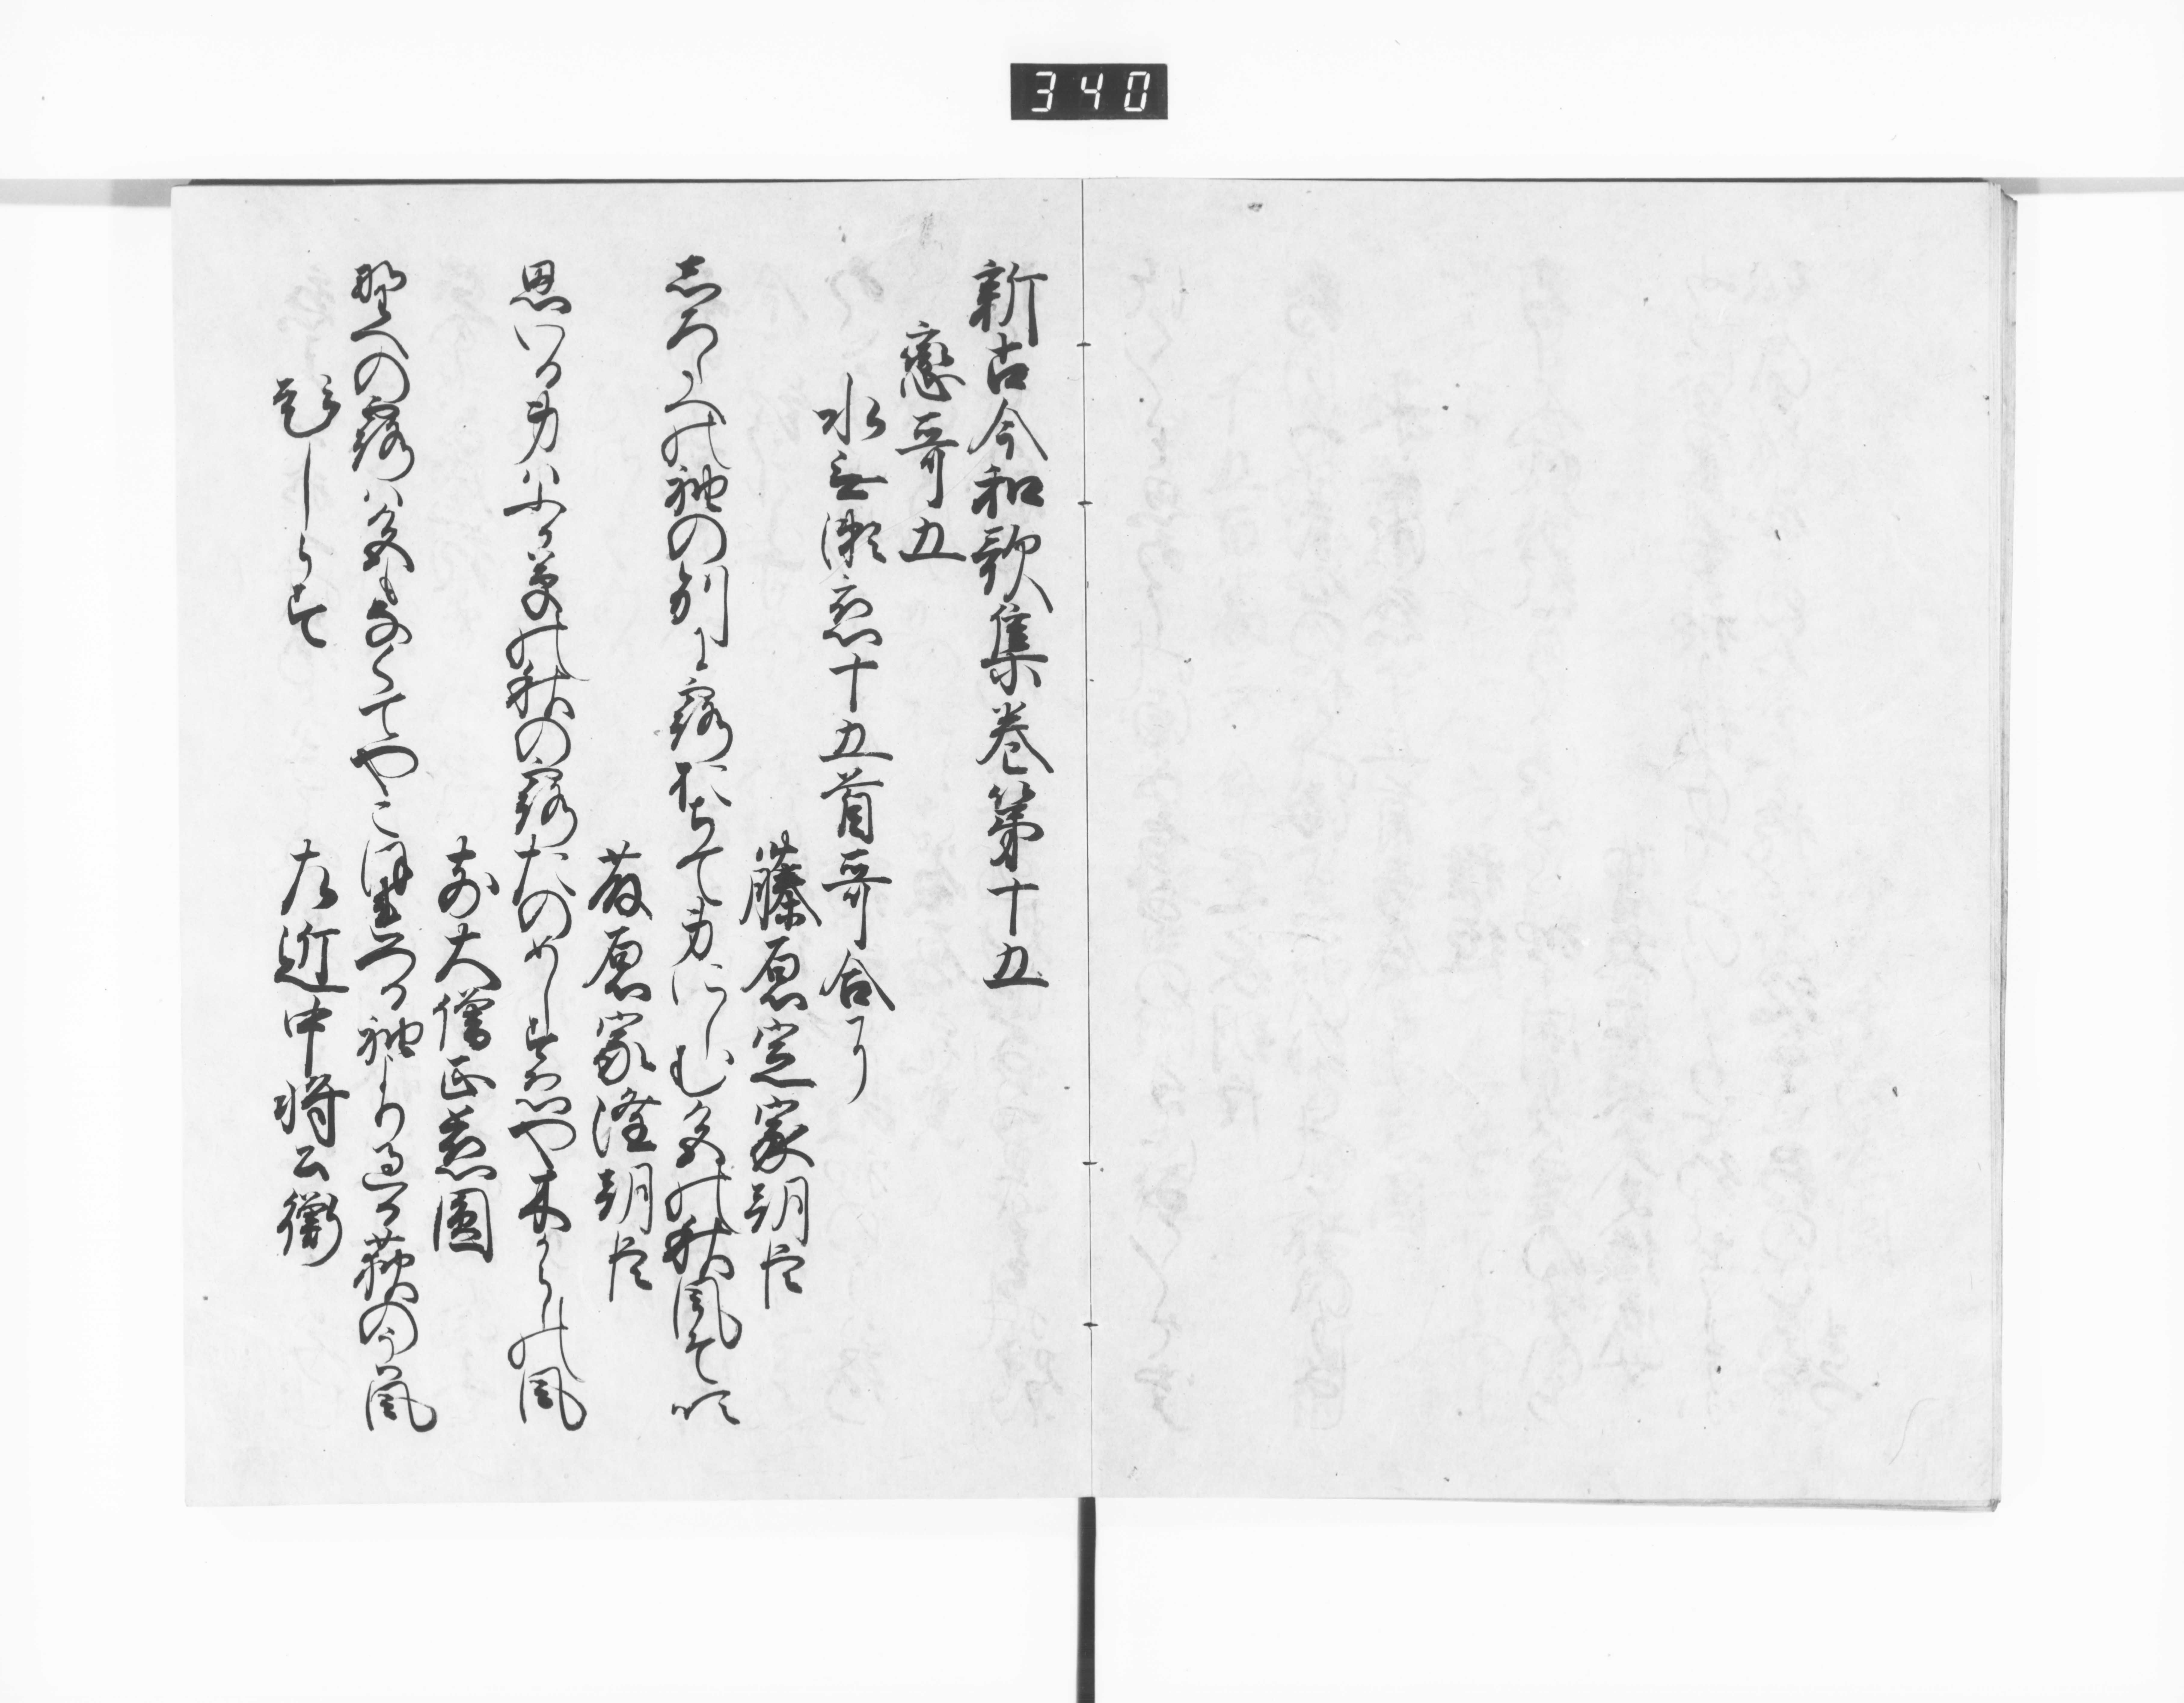 340
新古今和歌集巻第十五
戀哥五
水無瀬恋十五首哥合に
藤原定家朝臣
しろたへの袖の別に露おちて身にしむ色の秋風そ吹
藤原家隆朝臣
思いる身はふか草の秋の露たのめしすゑや木からしの風
前大僧正慈圓
野へのの露は色もなくてやこほれつる袖より過る荻のうは風
題しらす
左近中将公衡